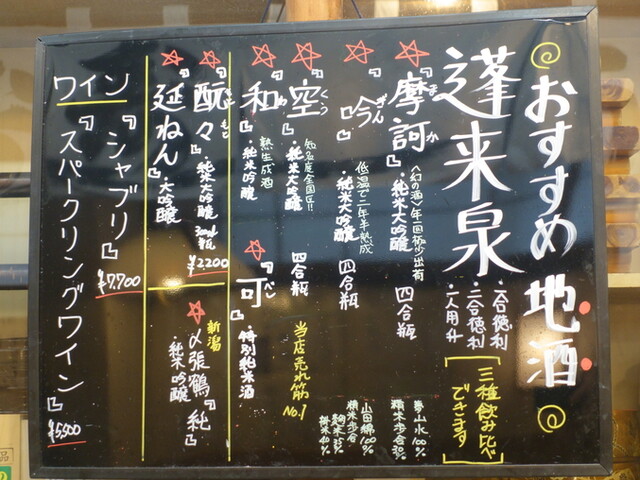 おすすめ地酒
蓬来泉
・二合徳利
・一人用升
【三種飲み比べ
できます】
『摩訶』
まか
〈幻の酒〉年一回極少出荷
・純米大吟醸
四合瓶
夢山水100%
精米歩合30%
『吟』
ぎん
低温で二年半熟成
・純米大吟醸
四合瓶
山田錦100%
精米歩合
麹米35%
掛米40%
『空』
くう
知名度全国区!!
・純米大吟醸
四合瓶
当店売れ筋
No.1
『和』
わ
熟生成酒
・純米吟醸
『可』
べし
・特別純米酒
『酛々』
もともと
・純米大吟醸
300ml瓶
¥2,200
新潟
〆張鶴『純』
・純米吟醸
『延ねん』
・大吟醸
ワイン
『シャブリ』
¥7,700
『スパークリングワイン』
¥5,500